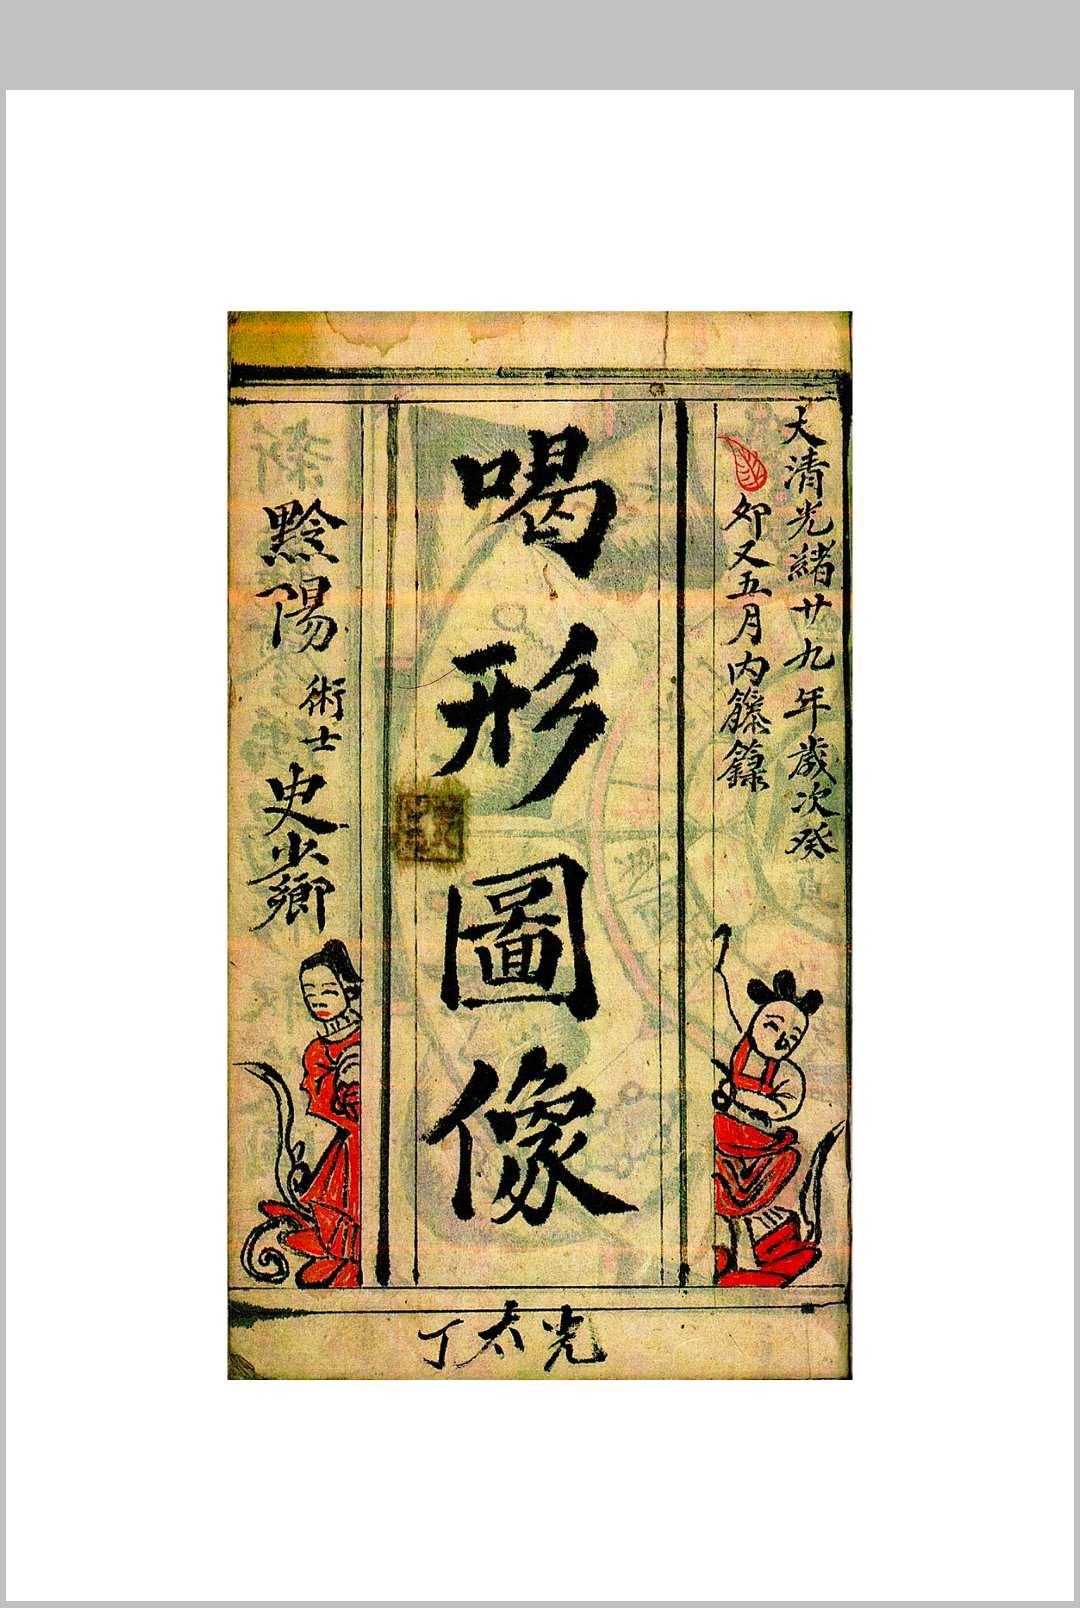 大清光緒廿九年歲次癸
卯又五月内籐籙
喝形圖像
黔陽術士史少卿
丁太光